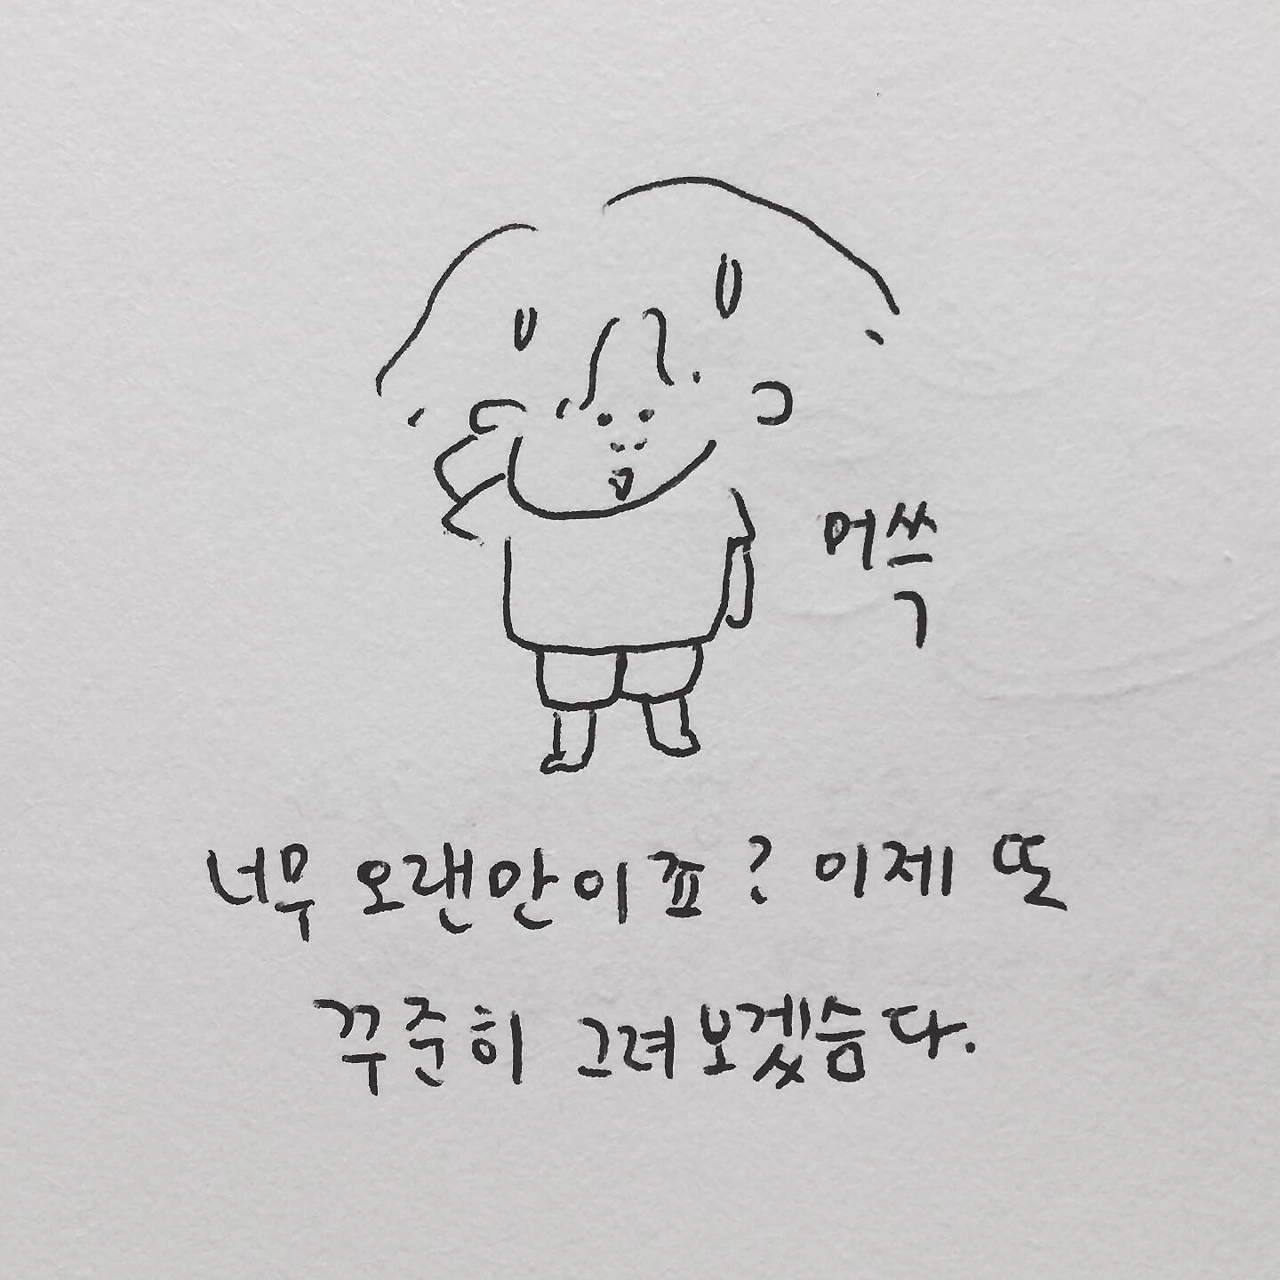 머쓱
너무 오랜만이죠? 이제 또
꾸준히 그려보겠슴다.